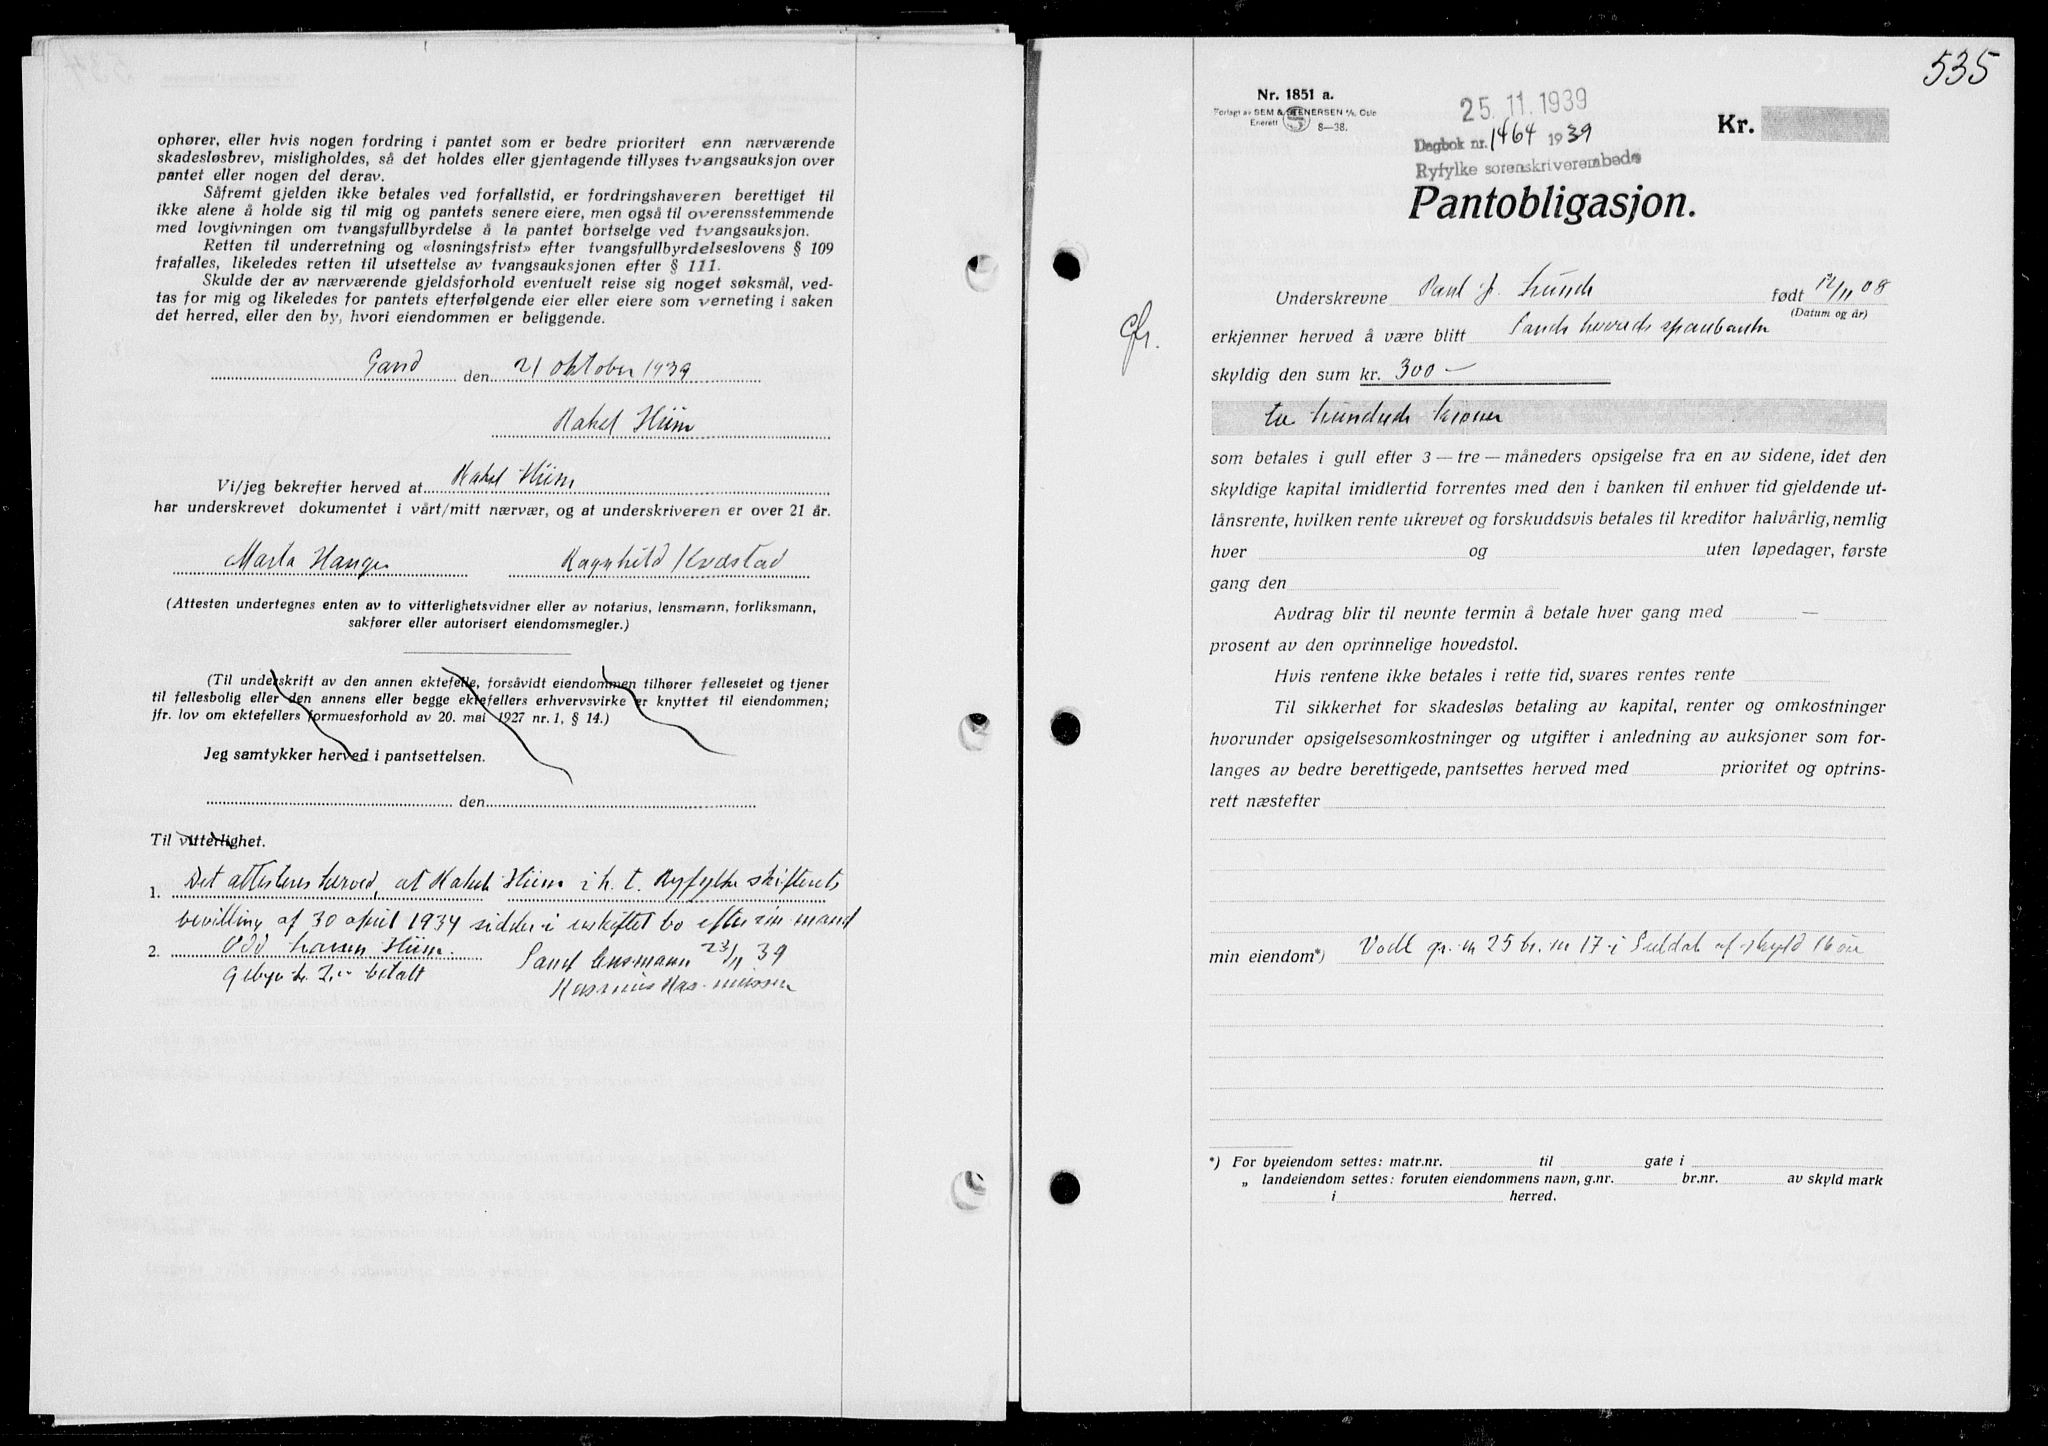 ophører, eller hvis nogen fordring i pantet som er bedre prioritert enn nærværende
skadesløsbrev, misligholdes, så det holdes eller gjentagende tillyses tvangsauksjon over
pantet eller nogen del derav.
Såfremt gjelden ikke betales ved forfallstid, er fordringshaveren berettiget til
ikke alene å holde sig til mig og pantets senere eiere, men også til overensstemmende
med lovgivningen om tvangsfullbyrdelse å la pantet bortselge ved tvangsauksjon.
Retten til underretning og «løsningsfrist» efter tvangsfullbyrdelseslovens § 109
frafalles, likeledes retten til utsettelse av tvangsauksjonen efter § 111.
Skulde der av nærværende gjeldsforhold eventuelt reise sig noget søksmål, ved-
tas for mig og likeledes for pantets efterfølgende eier eller eiere som verneting i saken
det herred, eller den by, hvori eiendommen er beliggende.
Sand den 21 oktober 1939
Rakel Hiim
Vi/jeg bekrefter herved at Rakel Hiim
har underskrevet dokumentet i vårt/mitt nærvær, og at underskriveren er over 21 år.
Marta Hauge Ragnhild Kvæstad
(Attesten undertegnes enten av to vitterlighetsvidner eller av notarius, lensmann, forliksmann,
sakfører eller autorisert eiendomsmegler.)
(Til underskrift av den annen ektefelle, forsåvidt eiendommen tilhører felleseiet og tjener
til fellesbolig eller den annens eller begge ektefellers erhvervsvirke er knyttet til eiendommen;
jfr. lov om ektefellers formuesforhold av 20. mai 1927 nr. 1, § 14.)
Jeg samtykker herved i pantsettelsen.
den
Til vitterlighet.
1. Det attesteres herved, at Rakel Hiim i h. t. Ryfylke skifterets
bevilling af 30 april 1934 sidder i uskiftet bo efter sin mand
2. Odd Larsen Hiim.
Sand lensmann 23/11 39
Gebyr kr. 2.00 betalt
Rasmus Rasmussen
535
Nr. 1851 a.
Forlagt av SEM & STENERSEN A/S, Oslo
Enerett 8—38.
25. 11. 1939
Dagbok nr. 1464 1939
Ryfylke sorenskriverembede
Kr.
Pantobligasjon.
Underskrevne Paul J. Lunde født 12/11 08
(Datum og år)
cfr.
erkjenner herved å være blitt Sands herreds sparebank
skyldig den sum kr. 300 —
tre hundrede kroner
som betales i gull efter 3 — tre — måneders opsigelse fra en av sidene, idet den
skyldige kapital imidlertid forrentes med den i banken til enhver tid gjeldende ut-
lånsrente, hvilken rente ukrevet og forskuddsvis betales til kreditor halvårlig, nemlig
hver og uten løpedager, første
gang den
Avdrag blir til nevnte termin å betale hver gang med —
prosent av den oprinnelige hovedstol.
Hvis rentene ikke betales i rette tid, svares rentes rente
Til sikkerhet for skadesløs betaling av kapital, renter og omkostninger
hvorunder opsigelsesomkostninger og utgifter i anledning av auksjoner som for-
langes av bedre berettigede, pantsettes herved med prioritet og optrins-
rett næstefter
min eiendom*) Vadl gr. n 25 br. nr 17 i Suldal af skyld 16 øre
*) For byeiendom settes: matr.nr. til gate i
„ landeiendom settes: foruten eiendommens navn, g.nr. br.nr. av skyld mark
i herred.